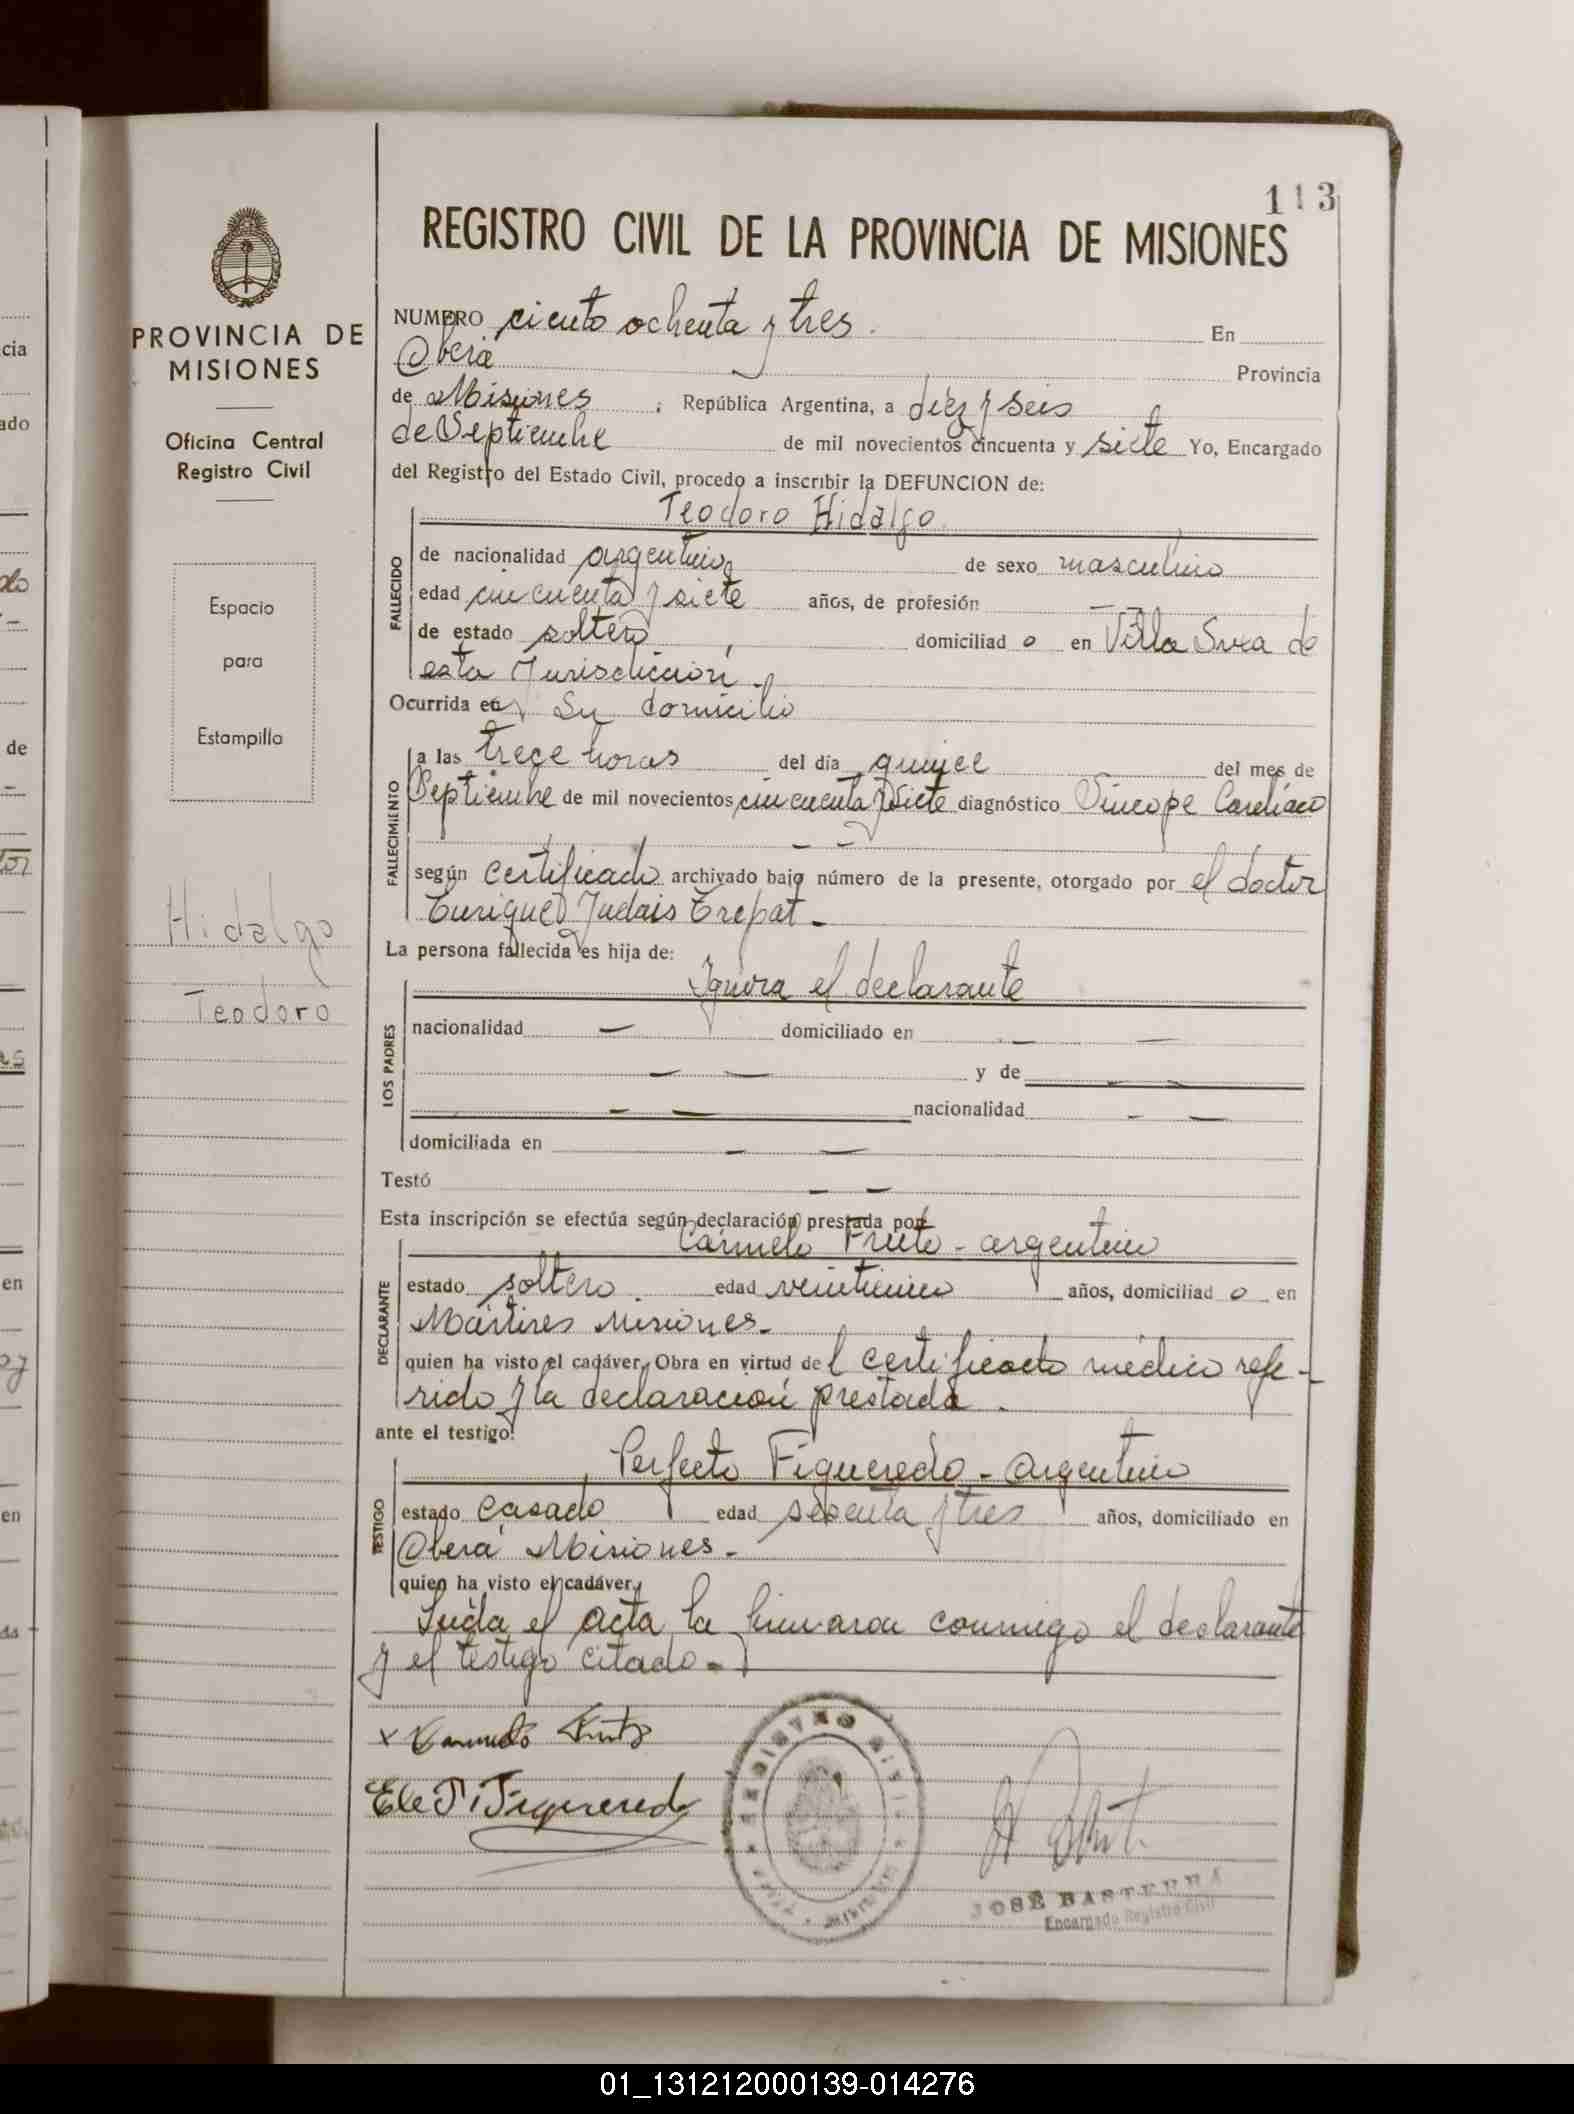 113
REGISTRO CIVIL DE LA PROVINCIA DE MISIONES
PROVINCIA DE
MISIONES
Oficina Central
Registro Civil
Espacio
para
Estampilla
Hidalgo
Teodoro
NUMERO ciento ochenta y tres. En
Oberá Provincia
de Misiones, República Argentina, a diez y seis
de Septiembre de mil novecientos cincuenta y siete Yo, Encargado
del Registro del Estado Civil, procedo a inscribir la DEFUNCION de:
Teodoro Hidalgo
FALLECIDO
de nacionalidad argentina de sexo masculino
edad cincuenta y siete años, de profesión — —
de estado soltero, domiciliad o en Villa Svea de
esta Jurisdicción.-
Ocurrida en Su domicilio
FALLECIMIENTO
a las trece horas del día quince del mes de
Septiembre de mil novecientos cincuenta y siete diagnóstico Síncope Cardíaco
— —
según certificado archivado bajo número de la presente, otorgado por el doctor
Enrique Judais Trepat.-
La persona fallecida es hija de:
Ignora el declarante
LOS PADRES
nacionalidad — domiciliado en — —
— — y de — —
— — nacionalidad — —
domiciliada en — —
Testó — —
Esta inscripción se efectúa según declaración prestada por
Carmelo Fruto - argentino
DECLARANTE
estado soltero. edad veinticinco años, domiciliad o en
Mártires Misiones.-
quien ha visto el cadáver. Obra en virtud de l certificado médico refe-
rido y la declaración prestada.
ante el testigo:
Perfecto Figueredo - argentino
TESTIGO
estado casado edad sesenta y tres años, domiciliado en
Oberá Misiones.-
quien ha visto el cadáver.
Leída el acta la firmaron conmigo el declarante
y el testigo citado.-
x Carmelo Fruto
Figueredo
REGISTRO CIVIL
JOSÉ BASTERRA
Encargado Registro Civil
cia
ado
de
en
en
01_131212000139-014276